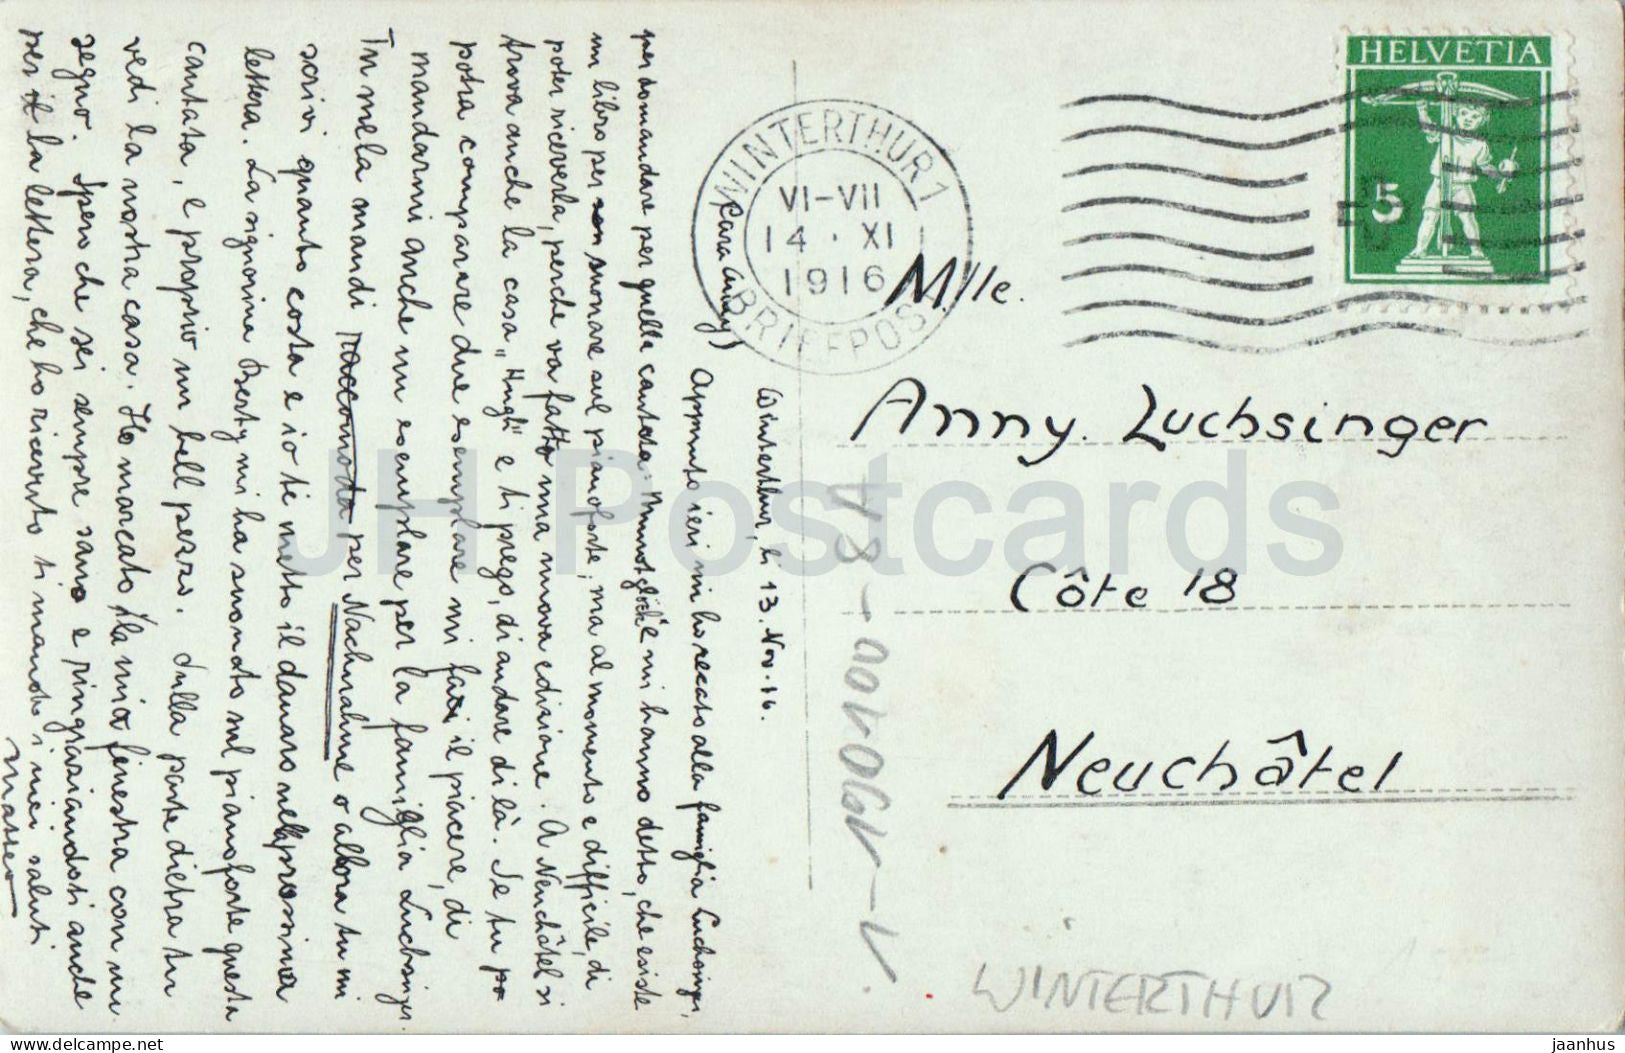 HELVETIA
5
WINTERTHUR 1
VI-VII
14 · XI
1916
BRIEFPOST
Mlle.
Anny. Luchsinger
Côte 18
Neuchâtel
WINTERTHUR
Winterthur, li 13. Nov. 16.
(Cara Anny)
Appunto ieri mi ho recato della famiglia Luchsinger,
per domandare per quella cantata: Munotglöckli e mi hanno detto, che esiste
un libro per suonare sul pianoforte; ma al momento e difficile, di
poter riceverla, perche va fatto una nuova edizione. A Neuchâtel si
trova anche la casa „Hugli" e ti prego, di andare di là. Se tu po
potra comparare due esemplare mi fai il piacere, di
mandarmi anche un esemplare per la famiglia Luchsinger.
Tu mela mandi per Nachnahme o allora tu mi
scrivi quanto costa e io ti metto il danaro nella prossima
lettera. La signorina Berty mi ha suonato sul pianoforte questa
cantata, e proprio un bell pezzo. dulla parte dietra tu
vedi la nostra casa. Ho marcato la mia finestra con un
segno. Spero che sei sempre sano e ringraziandoti anche
per il la lettera, che ho ricevuto ti mando i miei saluti
Matteo
JH Postcards
delcampe.net
jaanhus